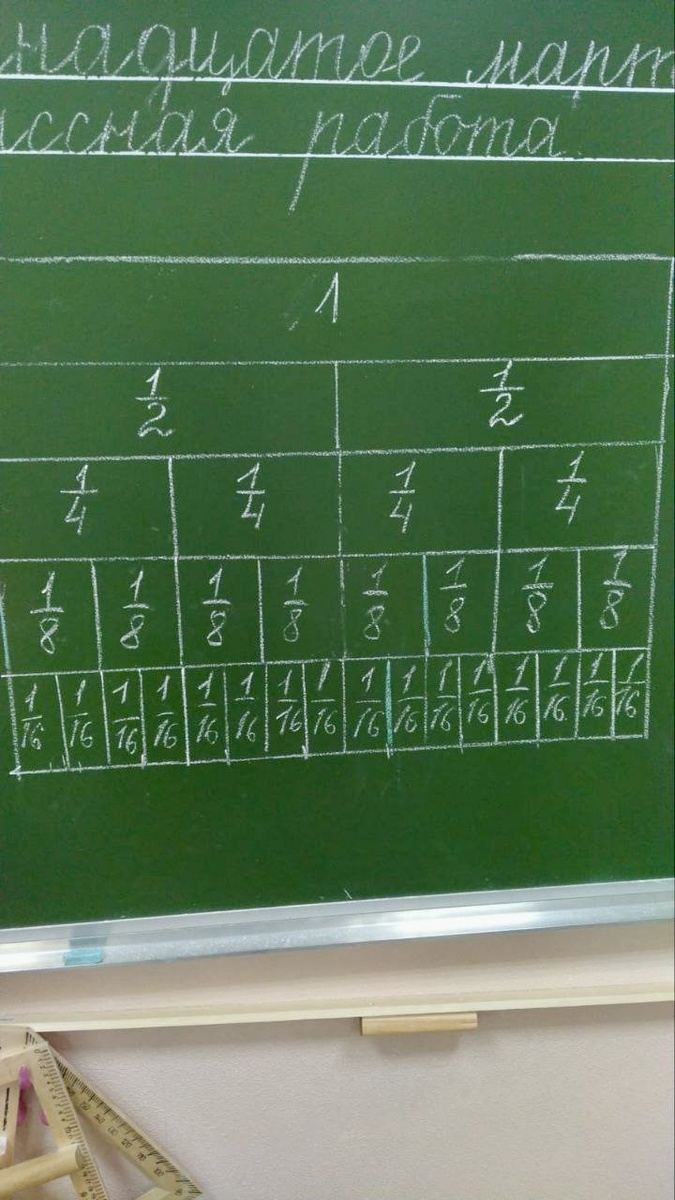 надцатое март
ссная работа
1
1/2 1/2
1/4 1/4 1/4 1/4
1/8 1/8 1/8 1/8 1/8 1/8 1/8 1/8
1/16 1/16 1/16 1/16 1/16 1/16 1/16 1/16 1/16 1/16 1/16 1/16 1/16 1/16 1/16 1/16